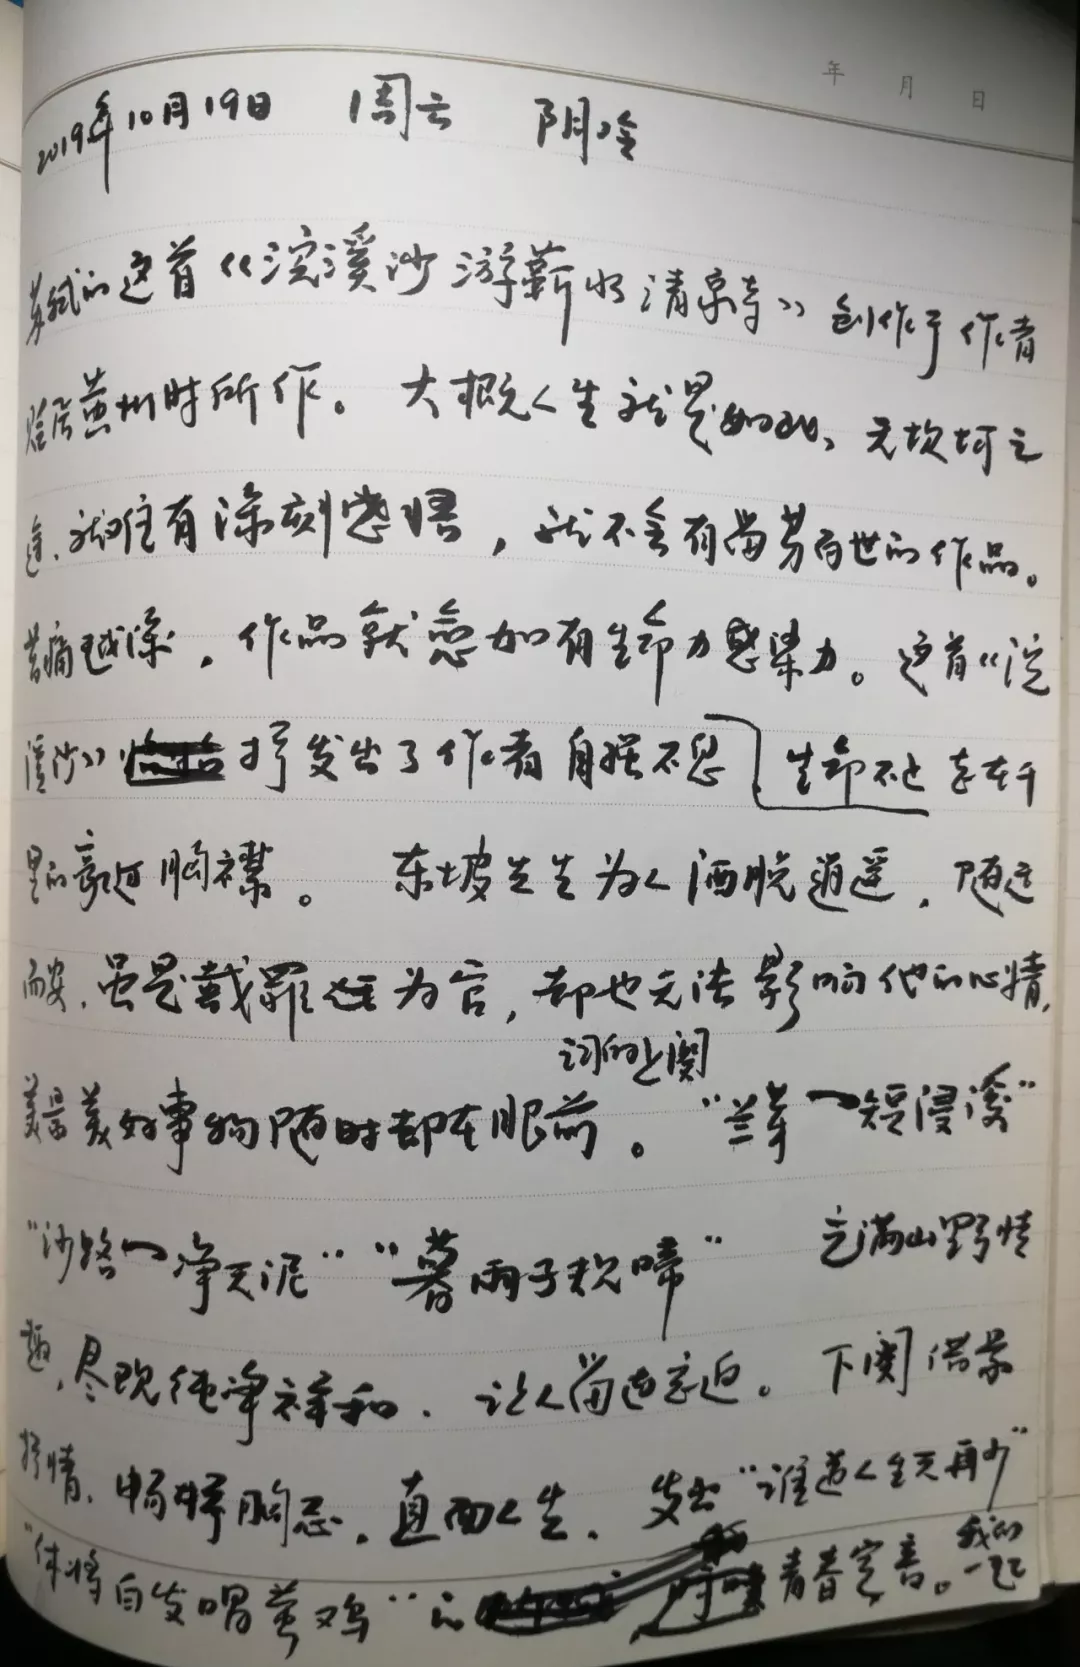 年 月 日
2019年10月19日 周六 阴冷
苏轼的这首《浣溪沙 游蕲水清泉寺》创作于作者
贬居黄州时所作。大概人生就是如此、无坎坷之
途、就难有深刻感悟，就不会有留芳百世的作品。
苦痛越深，作品就愈加有生命力感染力。这首《浣
溪沙》抒发出了作者自强不息 生命不止 志在千
里的豪迈胸襟。 东坡先生为人洒脱逍遥，随遇
而安，虽是戴罪 为官，却也无法影响他的心情，
词的上阕
美景美好事物随时都在眼前。“兰芽～短浸溪”
“沙路～净无泥”“暮雨子规啼” 满山野情
趣，尽现纯净祥和，让人留连忘返。下阕借景
抒情，畅舒胸忌，直面人生，发出“谁道人生无再少”
“休将白发唱黄鸡”的 青春宣言。我的
一起